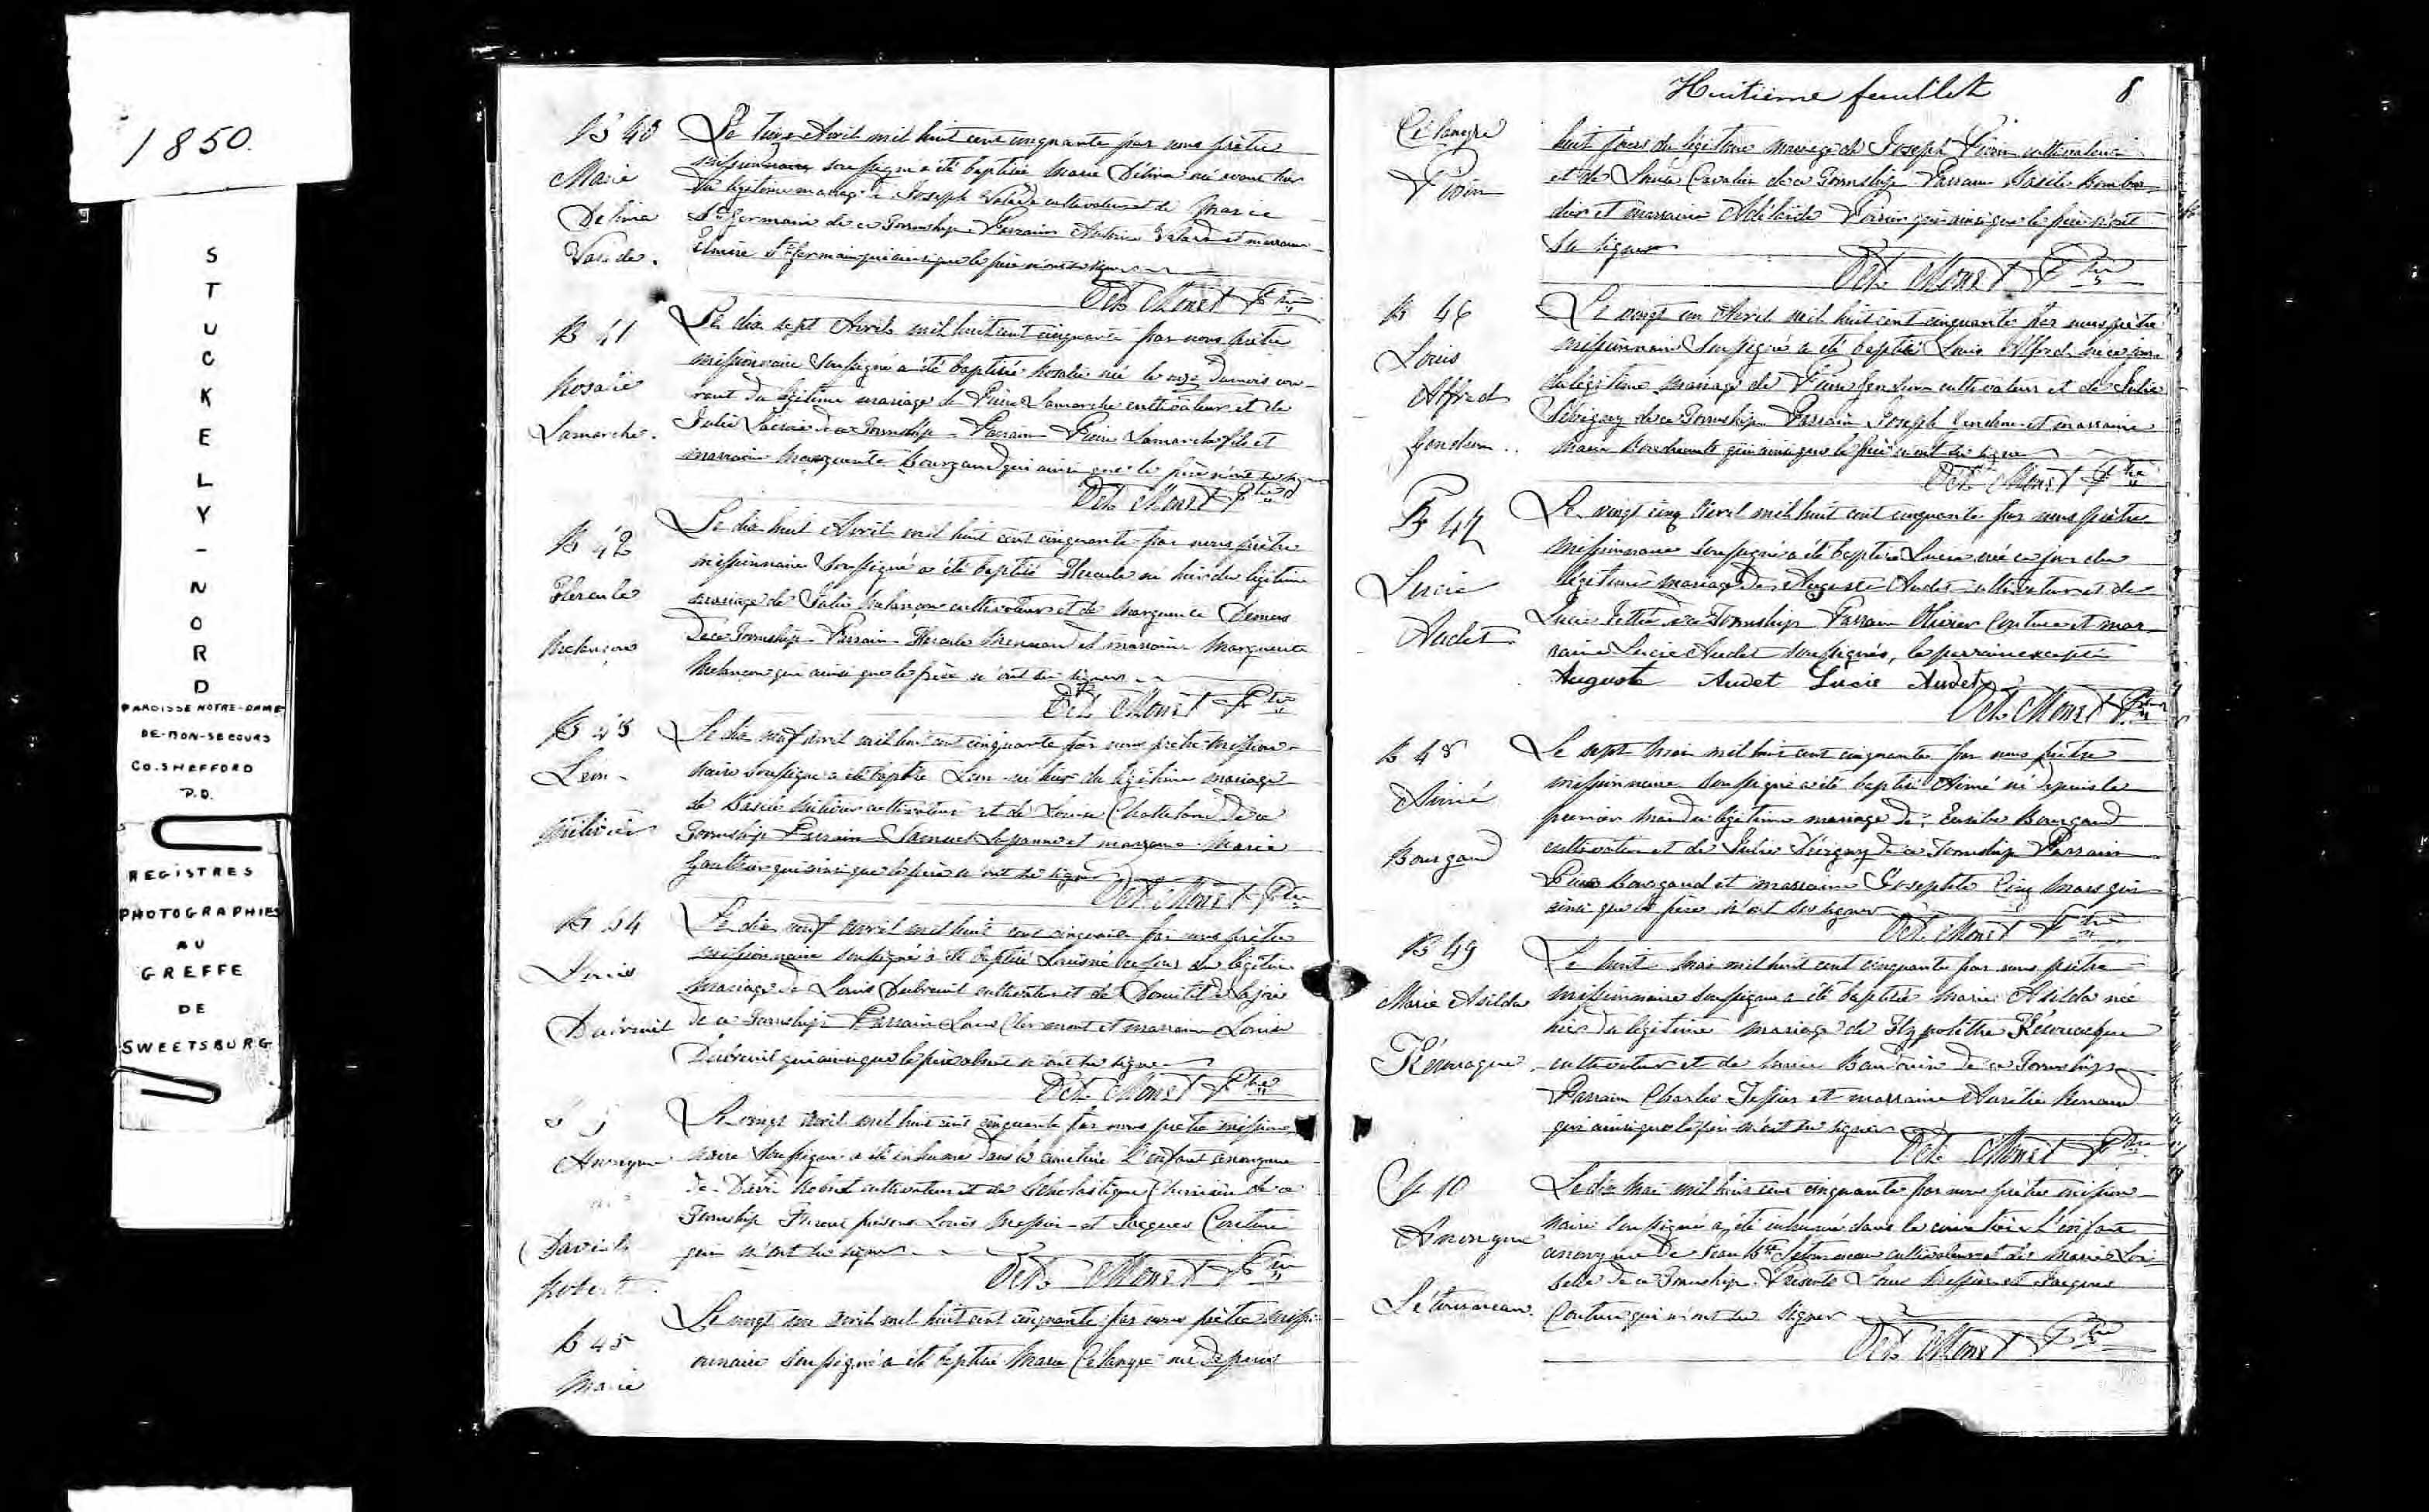 1850.
STUCKELY-NORD
PAROISSE NOTRE-DAME
DE-BON-SECOURS
CO. SHEFFORD
P.Q.
REGISTRES
PHOTOGRAPHIES
AU
GREFFE
DE
SWEETSBURG
B 40
Marie
Delima
Valade.
Le Avril mil huit cent cinquante par nous prêtre
missionnaire soussigné a été baptisée Marie Délima née avant hier
du légitime mariage de Joseph Valade cultivateur et de Marie
St Germain de ce Township Parrain Antoine Valade et marraine
St Germain qui ainsi que le père n'ont su signer
Oct. Monet Ptre
B 41
Rosalie
Lamarche.
Le dix sept Avril mil huit cent cinquante par nous prêtre
missionnaire soussigné a été baptisée Rosalie née le onze du mois cou-
rant du légitime mariage de Pierre Lamarche cultivateur et de
Julie de ce Township Parrain Pierre Lamarche fils et
marraine Marguerite Bourgaud qui ainsi que le père n'ont su signer
Oct. Monet Ptre
B 42
Hercule
Melançon
Le dix huit Avril mil huit cent cinquante par nous prêtre
missionnaire soussigné a été baptisé Hercule né hier du légitime
mariage de Melançon cultivateur et de Marguerite Demers
de ce Township Parrain Hercule et marraine Marguerite
Melançon qui ainsi que le père n'ont su signer
Oct. Monet Ptre
B 43
Léon
Le dix neuf Avril mil huit cent cinquante par nous prêtre mission-
naire soussigné a été baptisé Léon né hier du légitime mariage
de cultivateur et de Louise de ce
Township Parrain et marraine Marie
Gauthier qui ainsi que le père n'ont su signer
Oct. Monet Ptre
B 44
Louis
Dubreuil
Le dix neuf avril mil huit cent cinquante par nous prêtre
missionnaire soussigné a été baptisé Louis né ce jour du légitime
mariage de Louis Dubreuil cultivateur et de Lajoie
de ce Township Parrain Louis Clermont et marraine Louise
Dubreuil qui ainsi que le père absent n'ont su signer
Oct. Monet Ptre
Anonyme
David
Robert
Le vingt avril mil huit cent cinquante par nous prêtre mission
naire soussigné a été inhumé dans le cimetière l'enfant anonyme
de David Robert cultivateur et de Scholastique de ce
Township Furent présens Louis Messier et Jacques Couture
qui n'ont su signer
Oct. Monet Ptre
B 45
Marie
Le vingt un avril mil huit cent cinquante par nous prêtre missi-
onnaire soussigné a été baptisée Marie Célanyre née depuis
Huitième feuillet 8
Célanyre
Pivin
huit jours du légitime mariage de Joseph Pivin cultivateur
et de Cavalier de ce Township Parrain Basile Bombar-
dier et marraine Adélaïde Poirier qui ainsi que le père n'ont
su signer
Oct. Monet Ptre
B 46
Louis
Alfred
Gendron.
Le vingt un Avril mil huit cent cinquante par nous prêtre
missionnaire soussigné a été baptisé Louis Alfred né ce jour
du légitime mariage de Pierre Gendron cultivateur et de Julie
de ce Township Parrain Joseph Gendron et marraine
Marie qui ainsi que le père n'ont su signer
Oct. Monet Ptre
B 47
Lucie
Audet
Le vingt cinq Avril mil huit cent cinquante par nous prêtre
missionnaire soussigné a été baptisée Lucie née ce jour du
légitime mariage de Auguste Audet cultivateur et de
Lucie de ce Township Parrain Olivier Couture et mar-
raine Lucie Audet soussignés, le parrain excepté
Auguste Audet Lucie Audet
Oct. Monet Ptre
B 48
Aimé
Bourgaud
Le sept Mai mil huit cent cinquante par nous prêtre
missionnaire soussigné a été baptisé Aimé né depuis le
premier Mai du légitime mariage de Eusèbe Bourgaud
cultivateur et de Julie de ce Township Parrain
Pierre Bourgaud et marraine Josephte Cinq Mars qui
ainsi que le père n'ont su signer
Oct. Monet Ptre
B 49
Marie Asilda
Rémacque
Le huit Mai mil huit cent cinquante par nous prêtre
missionnaire soussigné a été baptisée Marie Asilda née
hier du légitime mariage de Hypolithe
cultivateur et de Marie de ce Township
Parrain Charles Tessier et marraine Aurélie Renaud
qui ainsi que le père n'ont su signer
Oct. Monet Ptre
S 10
Anonyme
Létourneau.
Le dix Mai mil huit cent cinquante par nous prêtre mission-
naire soussigné a été inhumé dans le cimetière l'enfant
anonyme de Jean Bte Létourneau cultivateur et de Marie Loi-
selle de ce Township. Présents Louis Messier et Jacques
Couture qui n'ont su signer
Oct. Monet Ptre